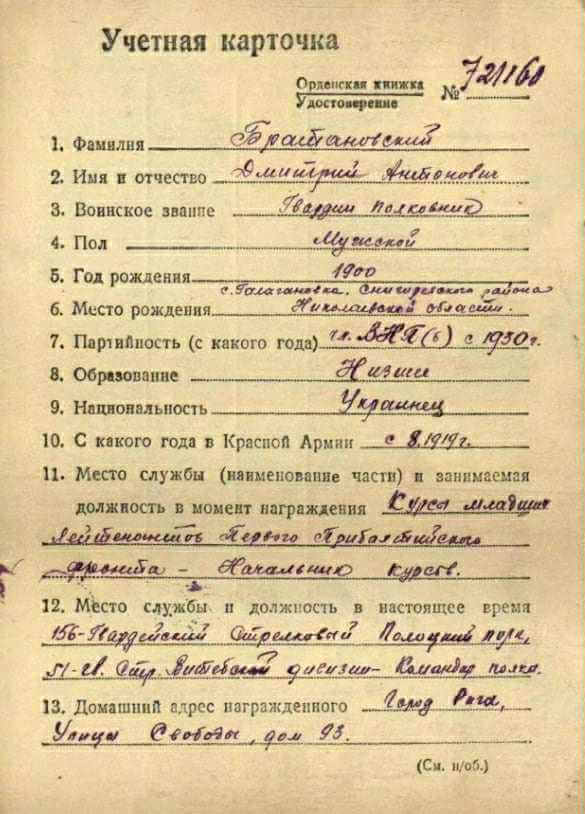 Учетная карточка
Орденская книжка
Удостоверение № 721160
1. Фамилия Браташовский
2. Имя и отчество Дмитрий Антонович
3. Воинское звание Гвардии полковник
4. Пол Мужской
5. Год рождения 1900
с. Галагановка, Снигиревского района
6. Место рождения Николаевской области.
7. Партийность (с какого года) чл. ВКП(б) с 1930г.
8. Образование Низшее
9. Национальность Украинец
10. С какого года в Красной Армии с 8.1919г.
11. Место службы (наименование части) и занимаемая
должность в момент награждения Курсы младших
лейтенантов Первого Прибалтийского
фронта – Начальник курсов.
12. Место службы и должность в настоящее время
156-Гвардейский Стрелковый Полоцкий полк,
51-гв. Стр. Витебской дивизии – Командир полка.
13. Домашний адрес награжденного Город Рига,
Улица Свободы, дом 93.
(См. н/об.)